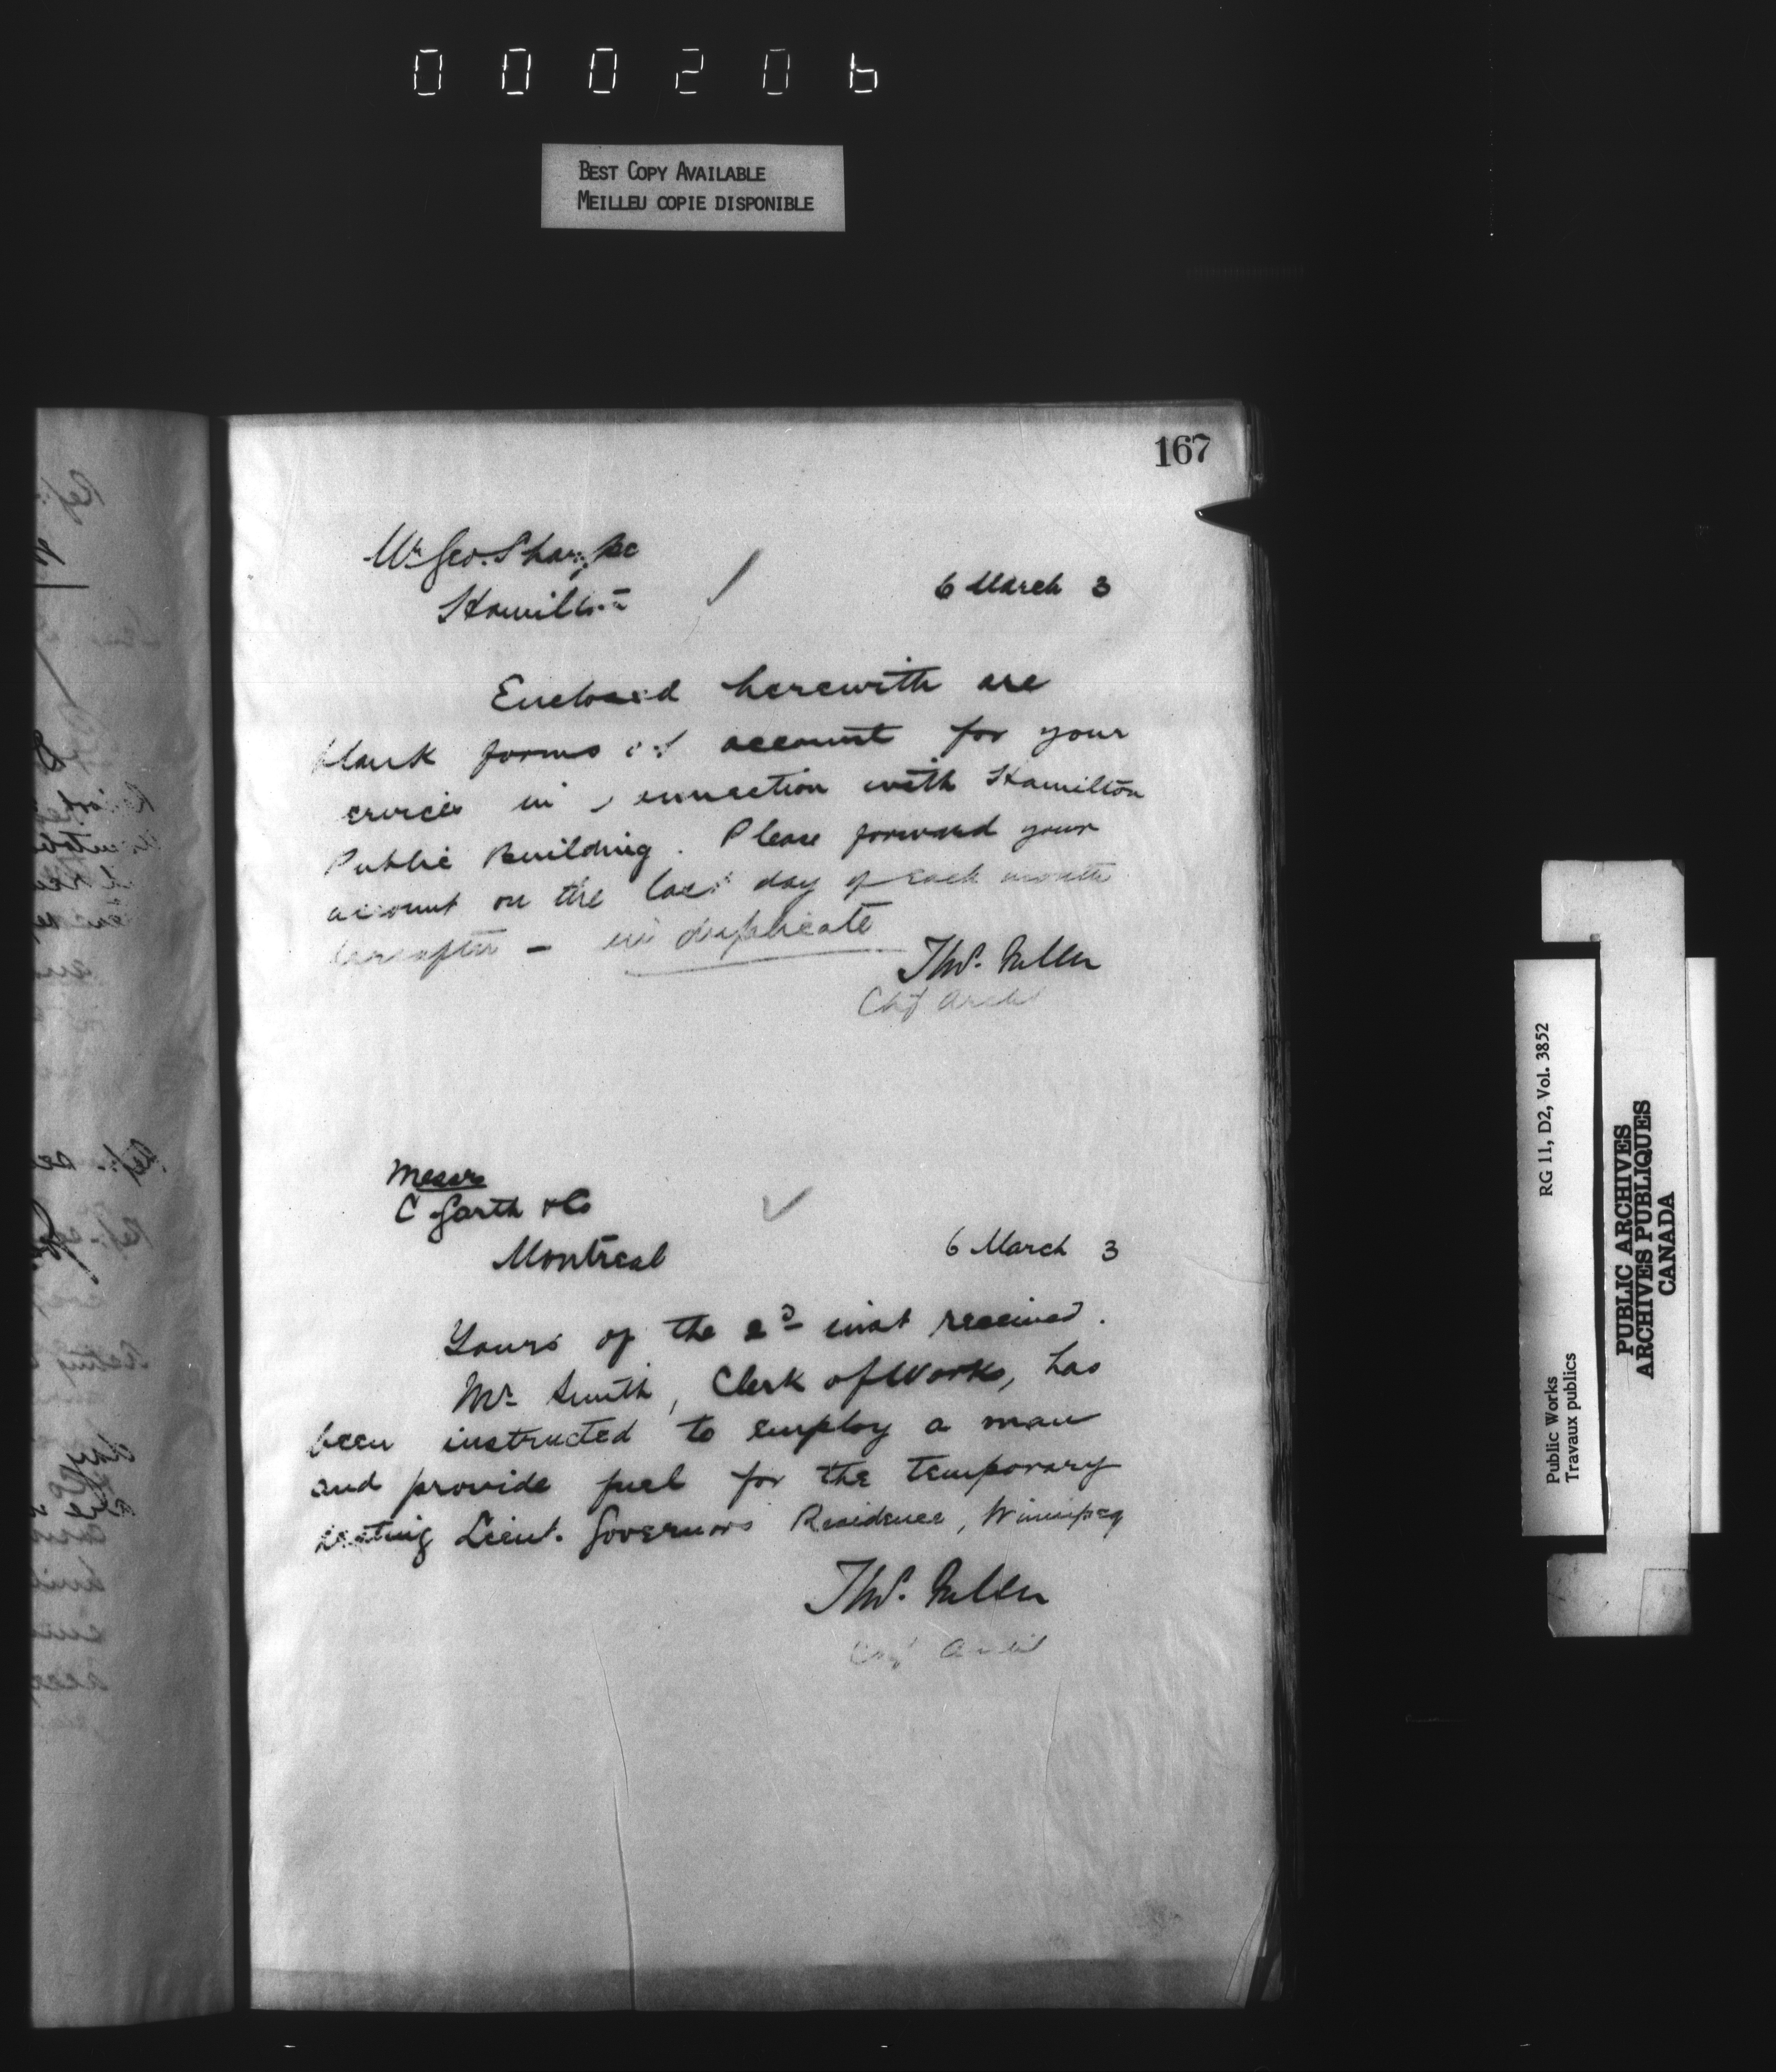 000206
BEST COPY AVAILABLE
MEILLEU COPIE DISPONIBLE
167
Mr Geo. Sharpe
Hamilton
6 March 3
Enclosed herewith are
blank forms of account for your
ervices in connection with Hamilton
Public Building. Please forward your
account on the last day of each month
hereafter - in duplicate
Thos. Fuller
Chf Archt
Messrs
C Garth & Co
Montreal
6 March 3
Yours of the 2d inst received.
Mr Smith, Clerk of Works, has
been instructed to employ a man
and provide fuel for the temporary
heating Lieut. Governors Residence, Winnipeg
Thos. Fuller
Chf Archt
RG 11, D2, Vol. 3852
Public Works
Travaux publics
PUBLIC ARCHIVES
ARCHIVES PUBLIQUES
CANADA